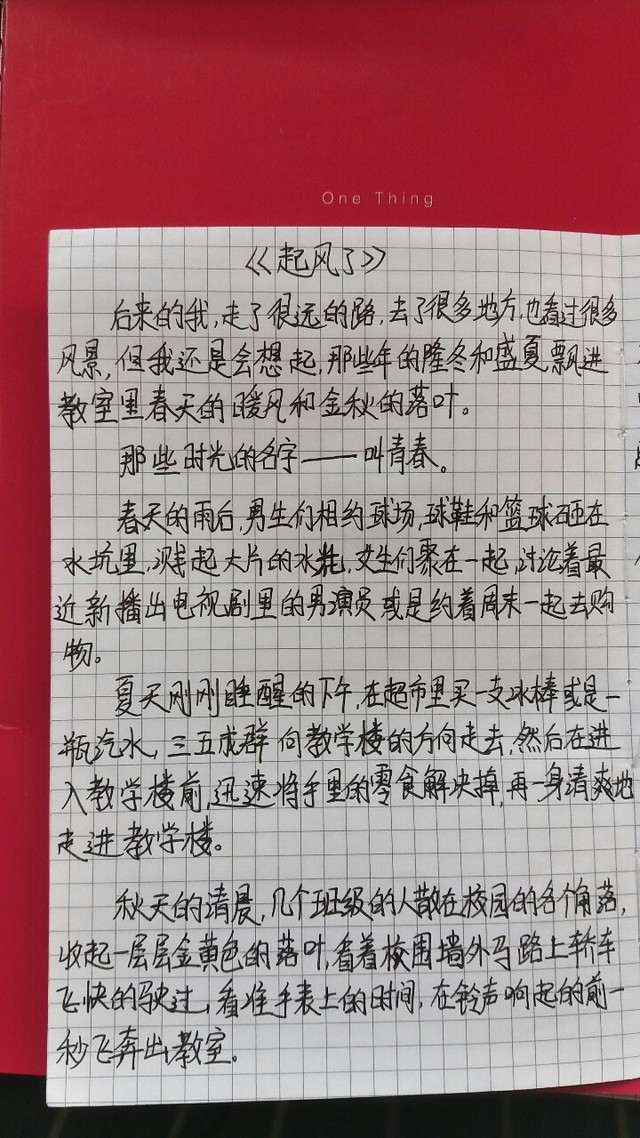 One Thing
《起风了》
后来的我,走了很远的路,去了很多地方,也看过很多
风景,但我还是会想起,那些年的隆冬和盛夏,飘进
教室里春天的暖风和金秋的落叶。
那些时光的名字——叫青春。
春天的雨后,男生们相约球场,球鞋和篮球砸在
水坑里,溅起大片的水花,女生们聚在一起,讨论着最
近新播出电视剧里的男演员或是约着周末一起去购
物。
夏天刚刚睡醒的下午,在超市里买一支冰棒或是一
瓶汽水,三五成群向教学楼的方向走去,然后在进
入教学楼前,迅速将手里的零食解决掉,再一身清爽地
走进教学楼。
秋天的清晨,几个班级的人散在校园的各个角落,
收起一层层金黄色的落叶,看着校围墙外马路上轿车
飞快的驶过,看准手表上的时间,在铃声响起的前一
秒飞奔出教室。